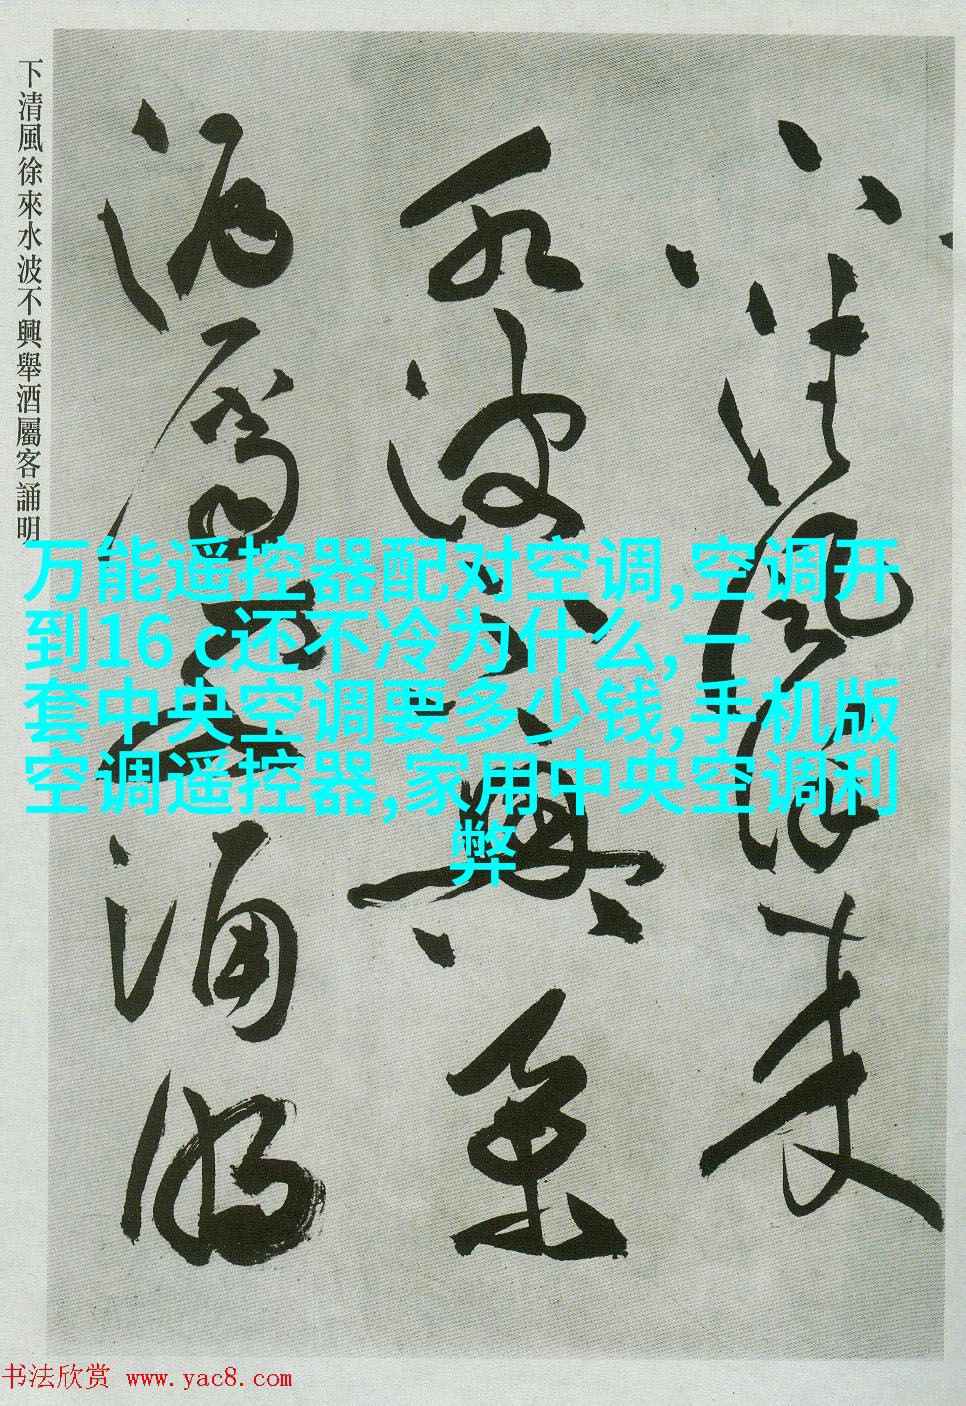 下清風徐來水波不興舉酒屬客誦明
下清風徐來
水波不興舉
酒屬客誦明
万能遥控器配对空调,空调开
到16 c还不冷为什么,一
套中央空调要多少钱,手机版
空调遥控器,家用中央空调利
弊
书法欣赏 www.yac8.com